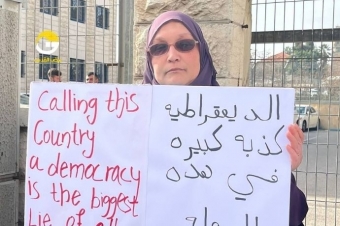 Calling this
Country
a democracy
is the biggest
lie of all
الديمقراطيه
كذبه كبيره
في هذه
الدوله